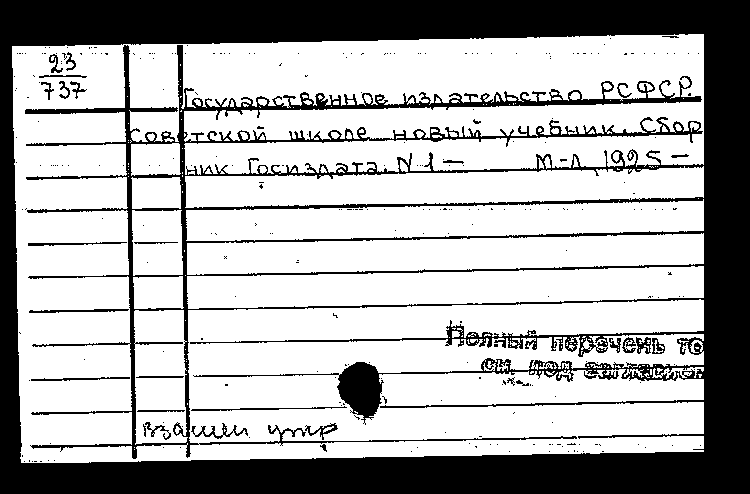 23
737
Государственное издательство РСФСР.
Советской школе новый учебник. Сбор
ник Госиздата. N 1 — М-Л, 1925 —
Полный перечень то
см. под заглавием
взамен утр